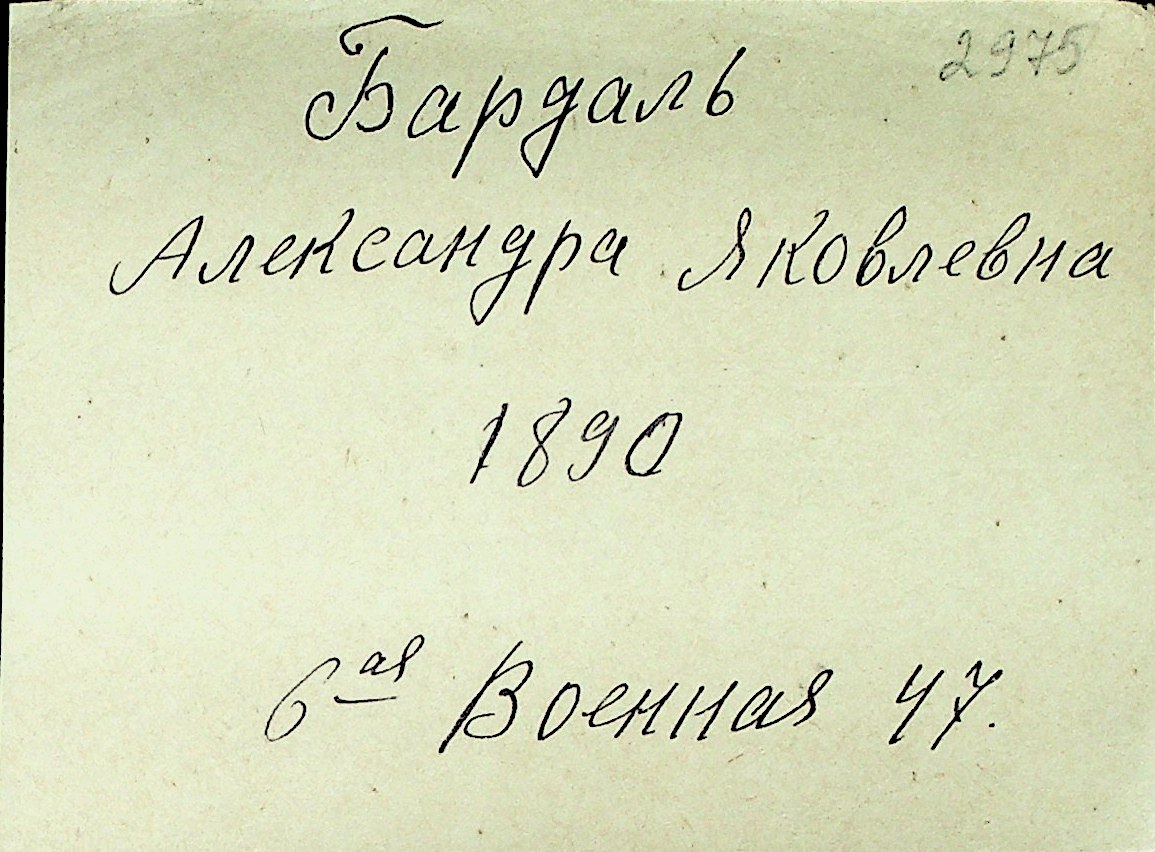 2975
Бардаль
Александра Яковлевна
1890
6ая Военная 47.